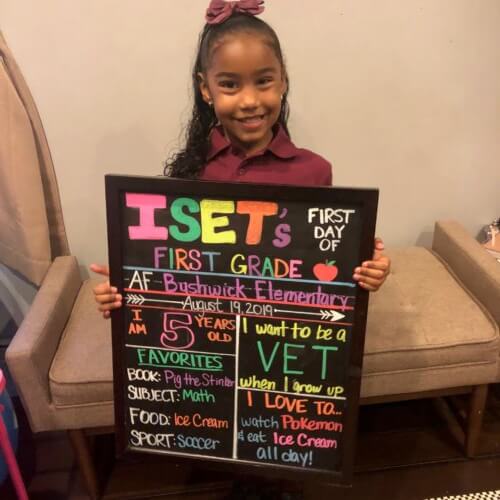 ISET's
FIRST
DAY
OF
FIRST GRADE
AF Bushwick Elementary
August 19, 2019
I AM 5 YEARS OLD
FAVORITES
BOOK: Pig the Stinker
SUBJECT: Math
FOOD: Ice Cream
SPORT: Soccer
I want to be a
VET
when I grow up
I LOVE TO...
watch Pokemon
& eat Ice Cream
all day!